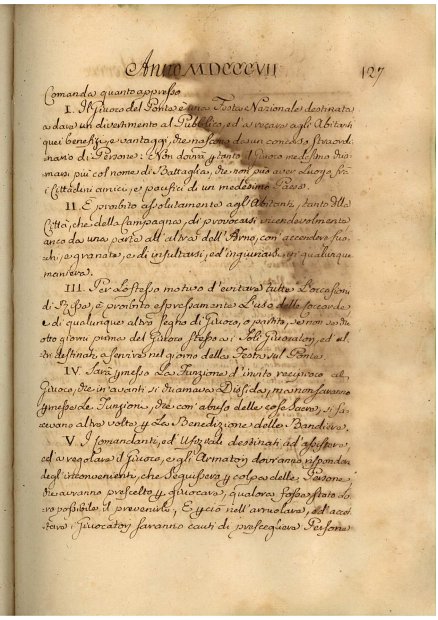 Anno MDCCCVII 127
Comanda quanto appresso
I. Il Giuoco del Ponte è una Festa Nazionale destinata
a dare un divertimento al Pubblico, ed a recare agli Abitanti
quei benefizj, e vantaggi, che nascono da un concorso straordi
nario di Persone: Non dovrà ptanto il Giuoco medesimo chia
marsi più col nome di Battaglia, che non può aver luogo frà
Cittadini amici, et pacifici di un medesimo Paese.
II. È proibito assolutamente agli Abitanti, tanto della
Città, che della Campagna, di provocarsi vicendevolmente
anco da una parte all' altra dell' Arno, con accendere fuo
chi, e granate, e di insultarsi, ed ingiuriarsi in qualunque
maniera.
III. Per lo stesso motivo d'evitare tutte l'occasioni
di Risse, è proibito espressamente l'uso delle coccarde
e di qualunque altro segno di Giuoco, o partito, se non se
otto giorni prima del Giuoco stesso a i soli Giuocatori, ed al
tri destinati a servire nel giorno della Festa sul Ponte.
IV. Sarà pmessa la Funzione d'invito reciproco al
Giuoco, che in avanti si chiamava Disfida, ma non saranno
pmesse le Funzioni, che con abuso delle cose Sacre, si fa
cevano altre volte p la Benedizione delle Bandiere.
V. I Comandanti, ed Ufiziali destinati ad assistere,
ed a regolare il Giuoco, e gli Armatori dovranno risponder
degl' inconvenienti, che seguissero p colpa delle Persone,
che avranno prescelto p giuocare, qualora fosse stato lo
ro possibile il prevenirli, E pciò nell' arruolare, ed accet
tare i Giuocatori saranno cauti di prescegliere Persone